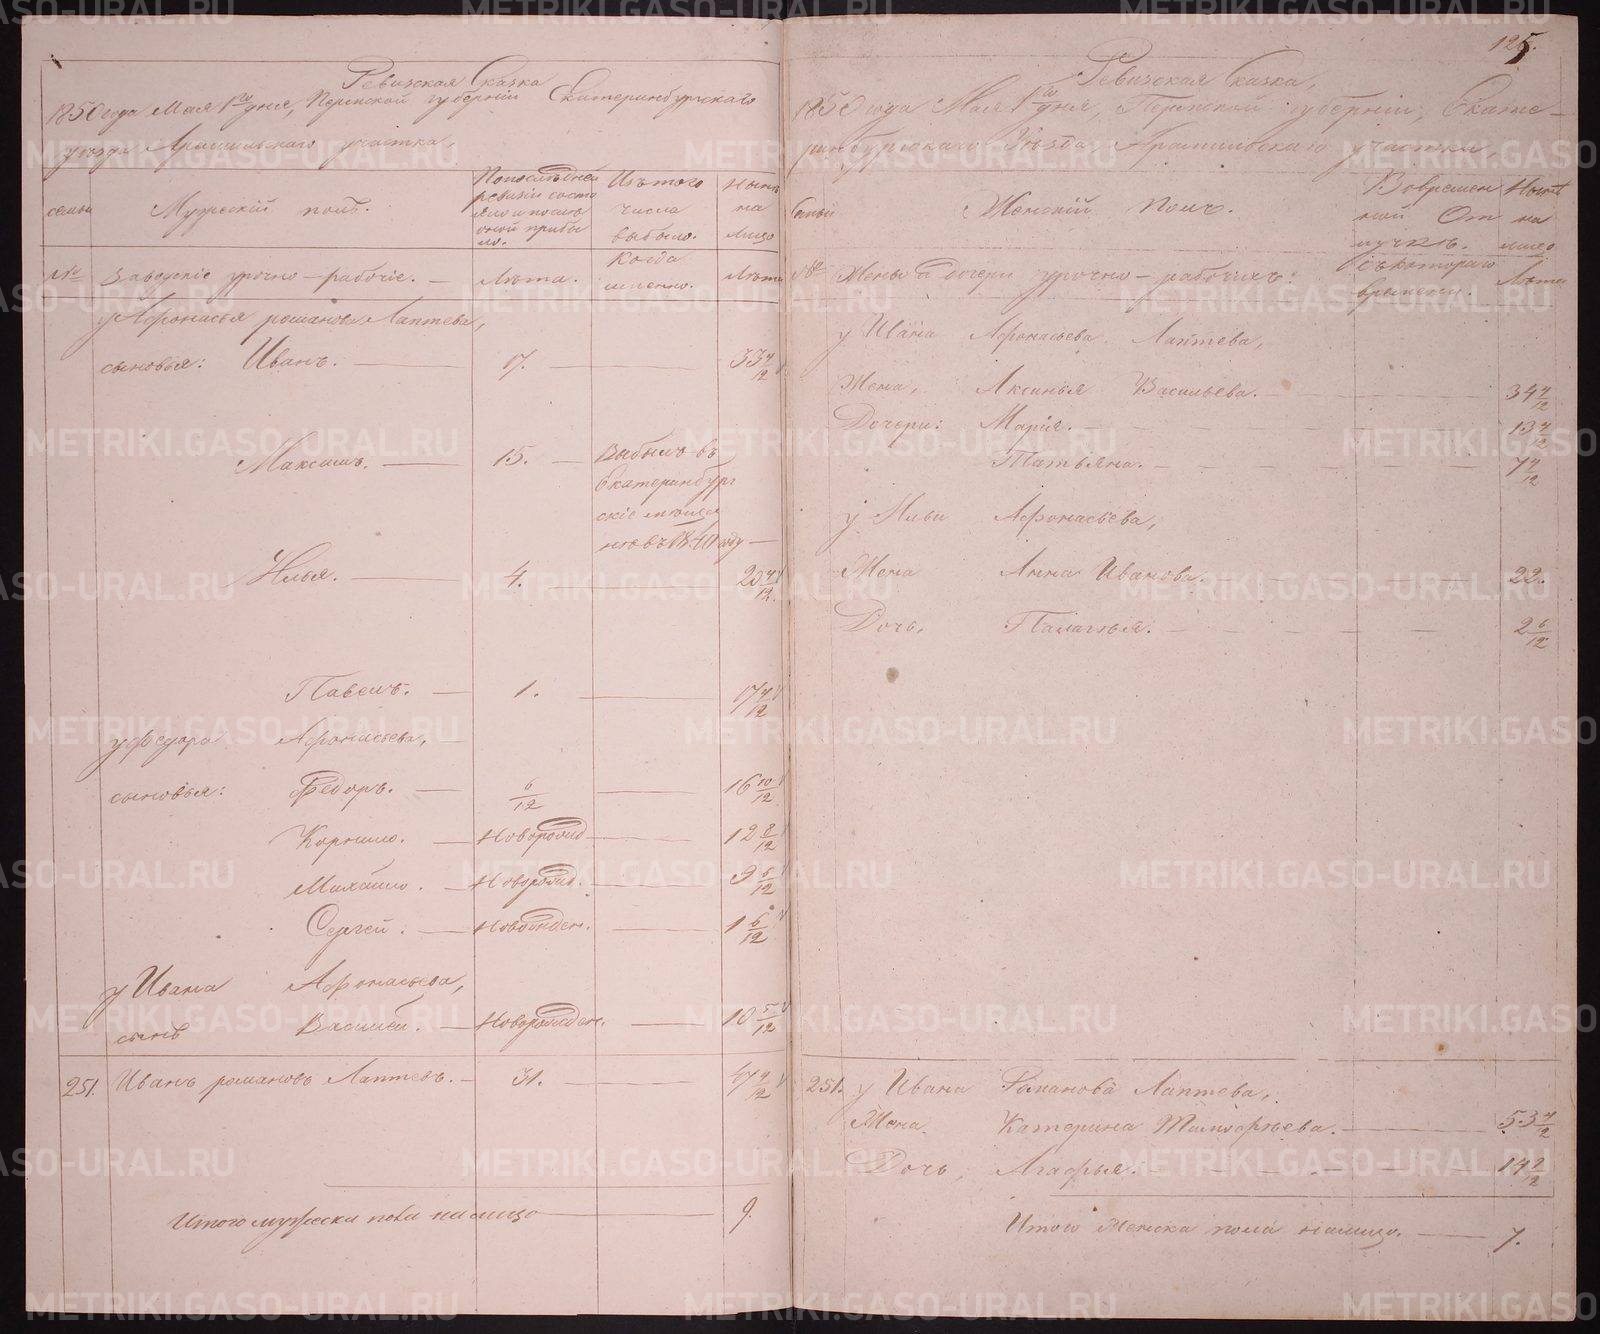 Ревизская Сказка
1850 года Мая 1го дня, Пермской губерніи Екатеринбургскаго
уезда Арамильскаго участка,
семьи
Мужескій полъ.
По последней
ревизіи состо
яло и после
оной прибы
ло.
Изъ того
числа
выбыло.
Ныне
на
лицо
№
Заводскіе урочно-рабочіе.
Лѣта.
Когда
именно.
Лѣта
у Афонасья романова Лаптева,
сыновья: Иванъ. 17. 33 4/12
Максимъ. 15. Выбылъ въ
Екатеринбург
скіе
1840 году
Илья. 4. 20 4/12
Павелъ. 1. 17 4/12
у Федора Афонасьева,
сыновья: Федоръ. 6/12 16 10/12
Корнило. Новорожд 12 8/12
Михайло. Новорожд. 9 6/12
Сергей. Новорожден. 1 6/12
у Ивана Афонасьева,
сынъ Василей. Новорожден. 10 5/12
251. Иванъ романовъ Лаптевъ. 31. 47 4/12
Итого мужеска пола налицо 9.
125.
Ревизская Сказка,
1850 года Мая 1го дня, Пермской губерніи, Екате-
ринбургскаго Уезда Арамильскаго участка,
Семьи
Женскій полъ.
Во времен
ной От
лучкѣ.
Ныне
на
лицо
№
Жены и дочери урочно-рабочихъ:
Съ котораго
времени.
Лѣта
у Ивана Афонасьева Лаптева,
Жена, Аксинья Васильева. 34 4/12
Дочери: Марія. 13 4/12
Татьяна. 7 4/12
у Ильи Афонасьева,
Жена Анна Иванова. 22.
Дочь, Палагья. 2 6/12
251. у Ивана Романова Лаптева,
Жена Катерина Тимофѣева. 53 4/12
Дочь, Агафья. 14 9/12
Итого Женска пола налицо. 7.
METRIKI.GASO-URAL.RU